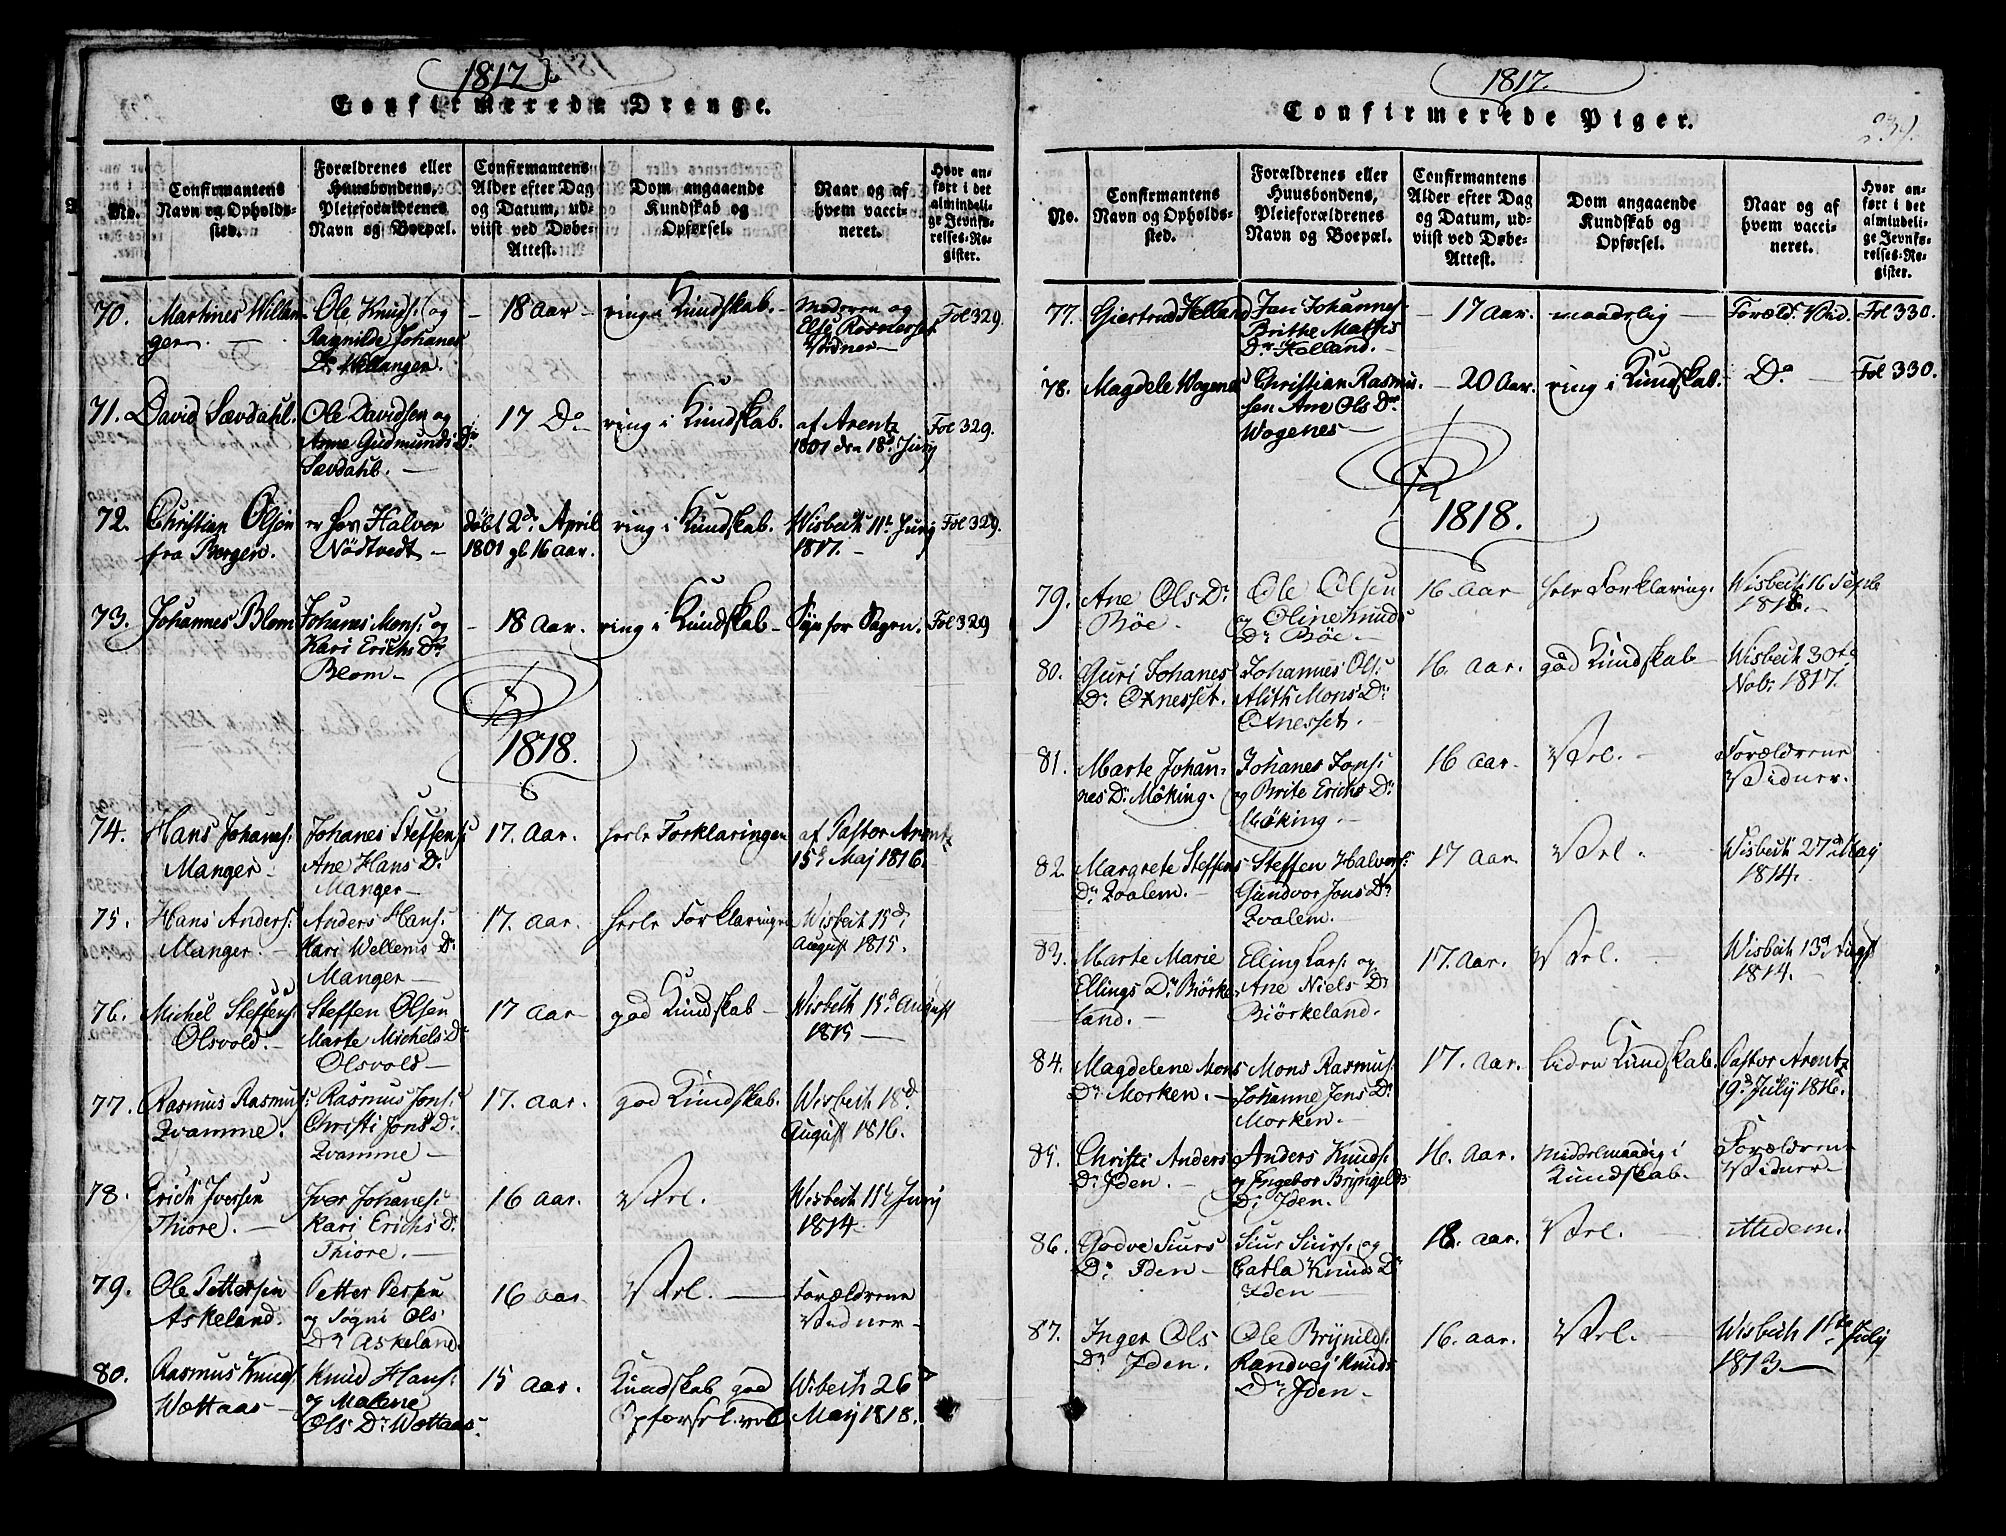 1817
Confirmerede Drenge.
No.
Confirmantens
Navn og Opholds-
sted.
Forældrenes eller
Huusbondens,
Pleieforældrenes
Navn og Boepæl.
Confirmantens
Alder efter Dag
og Datum, ud-
viist ved Døbe-
Attest.
Dom angaaende
Kundskab og
Opførsel.
Naar og af
hvem vacci-
neret.
Hvor an-
ført i det
almindeli-
ge Jevnfø-
relses-Re-
gister.
70. Martines Willan-
ger
Ole Knuds: og
Ragnilde Johanes
Dr Willangen.
18 Aar
ringe Kundskab.
Moderen og
Vidner
Fol 329.
71. David Sævdahl.
Ole Davidsen og
Anne Gudmunds Dr
Sævdahl.
17 Do
ring i Kundskab.
af Arentz
1801 den 18d Juny
Fol 329.
72. Christian Olsøn
fra Bergen.
er hos Halvor
Nødtvedt
døbt 2d April
1801 gl 16 aar.
ring i Kundskab.
Wisbech 11t Juny
1817.
Fol 329.
73. Johannes Blom
Johanes Mons: og
Kari Erichs Dr
Blom
18 Aar.
ring i Kundskab
Syn for Sagen.
Fol 329
1818.
74. Hans Johanes:
Manger
Johanes Steffens:
Ane Hans Dr
Manger
17. Aar.
heele Forklaringen
af Pastor Arentz
15d Maj 1816.
75. Hans Anders:
Manger.
Anders Hans:
Kari Wellems Dr
Manger
17. Aar.
heele Forklaringen
Wisbech 15d
August 1815.
76. Michel Steffens:
Olsvold.
Steffen Olsen
Marte Michels Dr
Olsvold
17 Aar
god Kundskab
Wisbech 15d August
1815
77. Rasmus Rasmus:
Qvamme.
Rasmus Jons:
Christi Jons Dr
Qvamme
17. Aar.
god Kundskab.
Wisbech 18d
August 1816.
78. Erich Iversen
Thiore.
Iver Johanes:
Kari Erichs Dr
Thiore.
16 Aar.
Vel.
Wisbech 15d Juny
1814.
79. Ole Pettersen
Askeland.
Petter Persen
og Søgni Ols
Dr Askeland.
16 Aar
Vel.
Forældrene
Vidner
80. Rasmus Knuds:
Wottaas
Knud Hans:
og Malene
Ols Dr Wottaas.
15 Aar.
Kundskab god
Opførsel vel
Wibech 26
May 1818.
1817.
Confirmerede Piger.
234.
No.
Confirmantens
Navn og Opholds-
sted.
Forældrenes eller
Huusbondens,
Pleieforældrenes
Navn og Boepæl.
Confirmantens
Alder efter Dag
og Datum, ud-
viist ved Døbe-
Attest.
Dom angaaende
Kundskab og
Opførsel.
Naar og af
hvem vacci-
neret.
Hvor an-
ført i det
almindeli-
ge Jevnfø-
relses-Re-
gister.
77. Giertrud Helland
Jan Johannes
Brithe Mathis
Dr Helland.
17 Aar.
maadelig
Foræld: Vid.
Fol 330.
78. Magdele Wogenes
Christian Rasmu-
sen Ane Ols Dr
Wogenes
20 Aar.
ring i Kundskab.
Do
Fol 330.
1818.
79. Ane Ols Dr
Bøe.
Ole Olsen
og Oline Knuds
Dr Bøe.
16 Aar
hele Forklaring.
Wisbech 16 Septe
80. Guri Johanes
Dr Oxnesset.
Johannes Ols:
Alith Mons Dr
Oxnesset.
16. Aar.
god Kundskab
Wisbech 30te
Nob: 1817.
81. Marte Johan-
nes Dr Møking.
Johanes Jons:
og Brite Erichs Dr
Møking.
16 Aar.
Vel.
Forældrene
Vidner.
82. Margrete Steffens
Dr Qvalem.
Steffen Halvors:
Gundvor Jons Dr
Qvalem.
17 Aar.
Vel.
Wisbech 27d May
1814.
83. Marte Marie
Ellings Dr Biørke-
land.
Elling Lars: og
Ane Niels Dr
Biørkeland.
17. Aar.
Vel.
Wisbech 13d Augst
1814.
84. Magdelene Mons
Dr Morken.
Mons Rasmus:
Johanne Jens Dr
Morken.
17. Aar.
liden Kundskab.
Pastor Arentz
19d July 1816.
85. Christi Anders
Dr Iden.
Anders Knuds:
og Ingebor Bryngilds
Dr Iden.
16. Aar.
middelmaadig i
Kundskab.
Forældrene
Vidner
86. Godve Siurs
Dr Iden
Siur Siurs: og
Catla Knuds Dr
Iden
18. Aar.
Vel.
Midem.
87. Inger Ols
Dr Iden.
Ole Brynilds:
Randvej Knuds
Dr Iden
16. Aar.
Vel.
Wisbech 16te July
1813